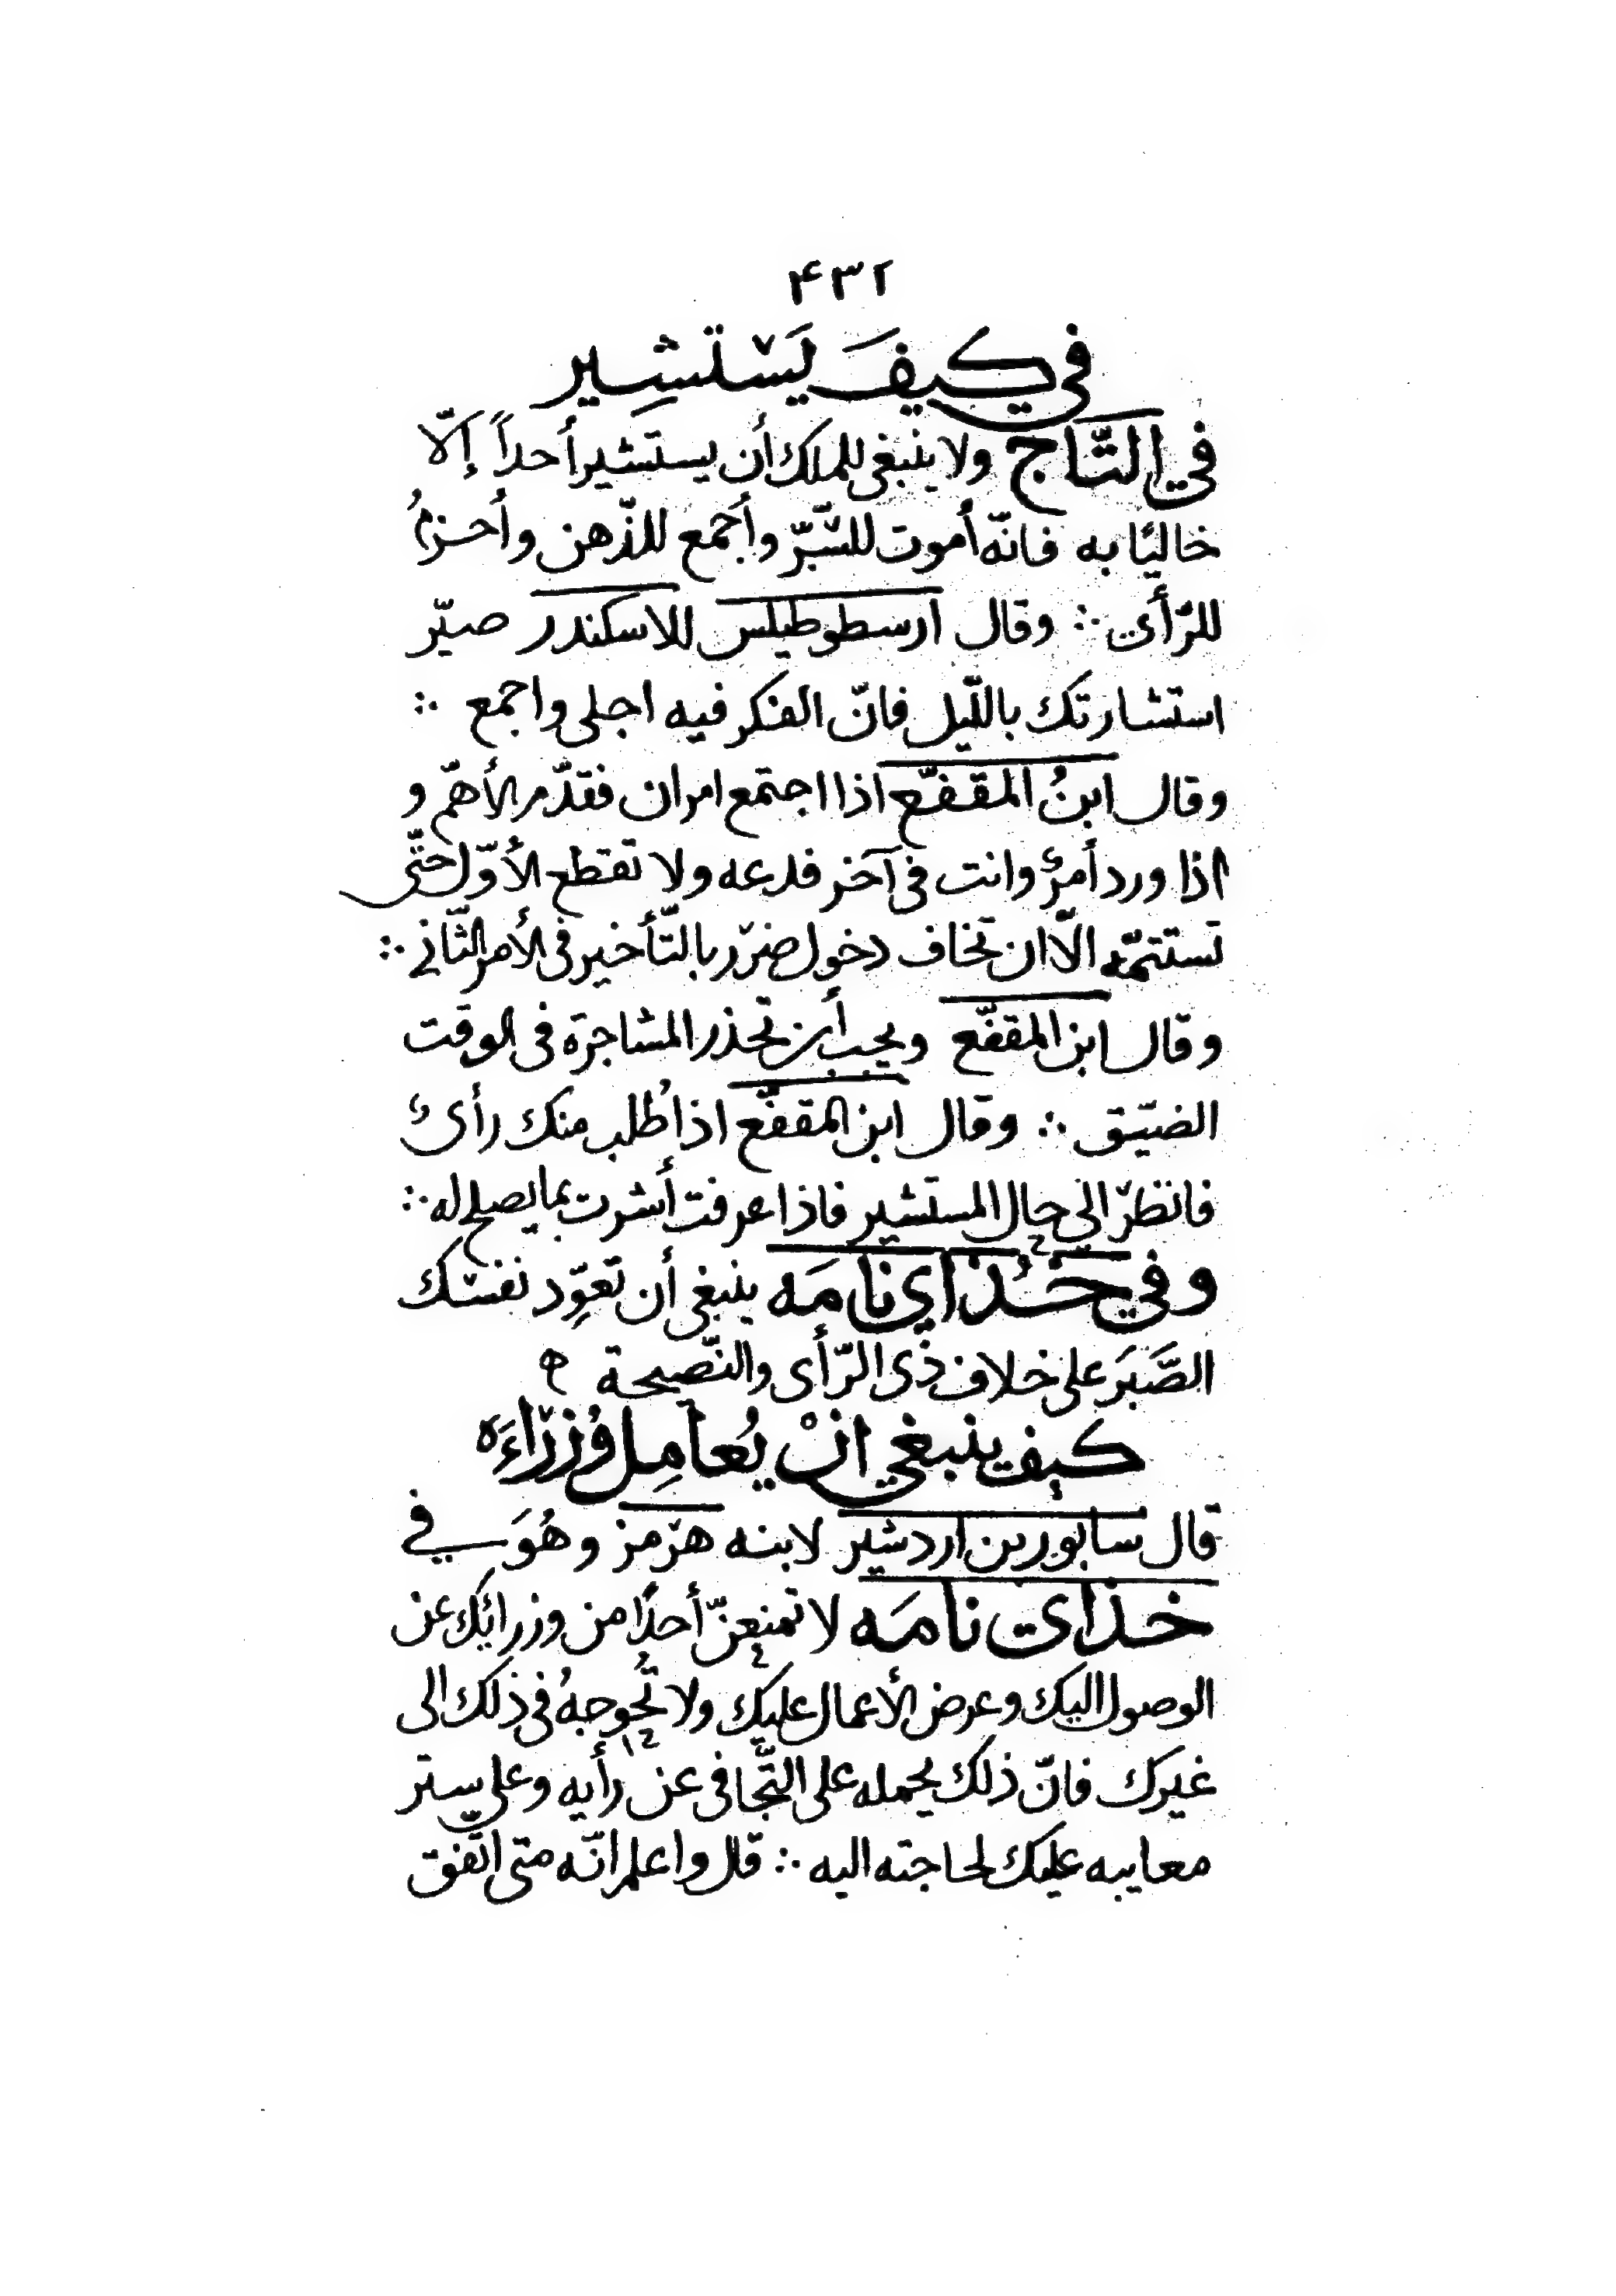 ۴۳۲
في كيفَ يَسْتشِير
في التّاج ولا ينبغى للملك أن يستشير أحداً إلّا
خاليًا به فانّه أموت للسّرّ وأجمع للذّهن وأحزمُ
للرّأى ∴ وقال ارسطوطيلس للاسكندر صيّر
استشارتك باللّيل فانّ الفكر فيه اجلى واجمع ∴
وقال ابنُ المقفّع اذا اجتمع امران فقدّم الأهمّ و
اذا ورد أمرٌ وانت فى آخر فدعه ولا تقطع الأوّل حتّى
تستتمّه الّا ان تخاف دخول ضرر بالتّأخير فى الأمر الثّانى ∴
وقال ابن المقفّع ويجب أن تحذر المشاجرة فى الوقت
الضيّق ∴ وقال ابن المقفّع اذا طُلب منك رأىٌ
فانظر الى حال المستشير فاذا عرفت أشرت بما يصلح له ∴
وفي خُذاي نامَه ينبغى أن تعوِّد نفسك
الصَّبَر على خلاف ذى الرّأى والنّصيحة ه
كيف ينبغي انْ يُعامِل وُزَراءَه
قال سابور بن اردشير لابنه هرمز وهُوَ في
خذاى نامَه لا تمنعنّ أحدًا من وزرائك عن
الوصول اليك وعرض الأعمال عليك ولا تُحوجهُ فى ذلك الى
غيرك فانّ ذلك يحمله على التّجافى عن رأيه وعلى ستر
معايبه عليك لحاجته اليه ∴ قال واعلم انّه متى اتّفق